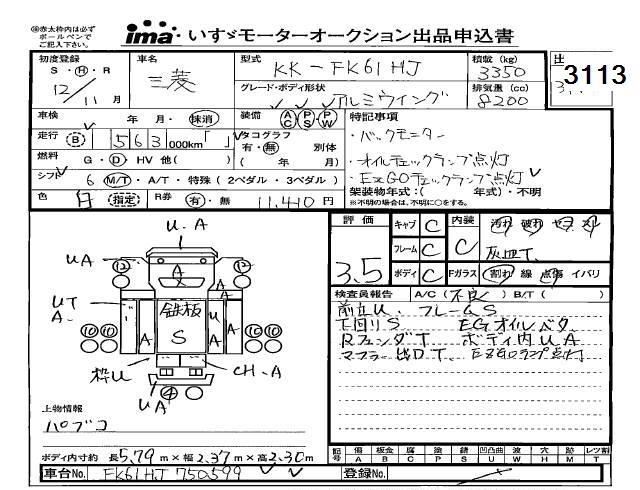 ※赤太枠内は必ず
ボールペンで
ご記入下さい。
ima いすゞモーターオークション出品申込書
3113
初度登録 S・H・R 12/11月
車名 三菱
型式 KK-FK61HJ
グレード・ボディ形状 アルミウイング
積載(kg) 3350
排気量(cc) 8200
車検 年・月・抹消
装備 AC PS・PW
特記事項
走行 B 563,000km「」
タコグラフ 有・無 別体 ( 年 月)
・バックモニター
燃料 G・D・HV 他( )
・オイルチェックランプ点灯
シフト 6 M/T・A/T・特殊(2ペダル・3ペダル)
・ExGOチェックランプ点灯
架装物年式:( 年式)・不明
※不明の場合は、不明に○をする。
色 白 指定 R券 有・無 11,410円
評価 3.5
キャブ C
フレーム C
ボディ C
内装 C
汚れ 破れ ヤブ スレ
灰皿T.
Fガラス 割れ 線 点傷 イバリ
検査員報告 A/C(不良) B/T( )
前立U. フレームS
下回りS EGオイルベタ
RフェンダT ボディ内UA
マフラー出口T. ExGOランプ点灯
U.A
UA
12
12
A
UT
A.
鉄板
S
A
A
U
A
A
10
10
10
10
枠U
CH-A
UA
4
上物情報
パブコ
ボディ内寸約 長5.79m×幅2.37m×高2.30m
記号 傷A 板金B 腐C 塗P 錆S 凹凸曲U 波W 穴H 跡M レツ割T
車台No. FK61HJ 750599
登録No.